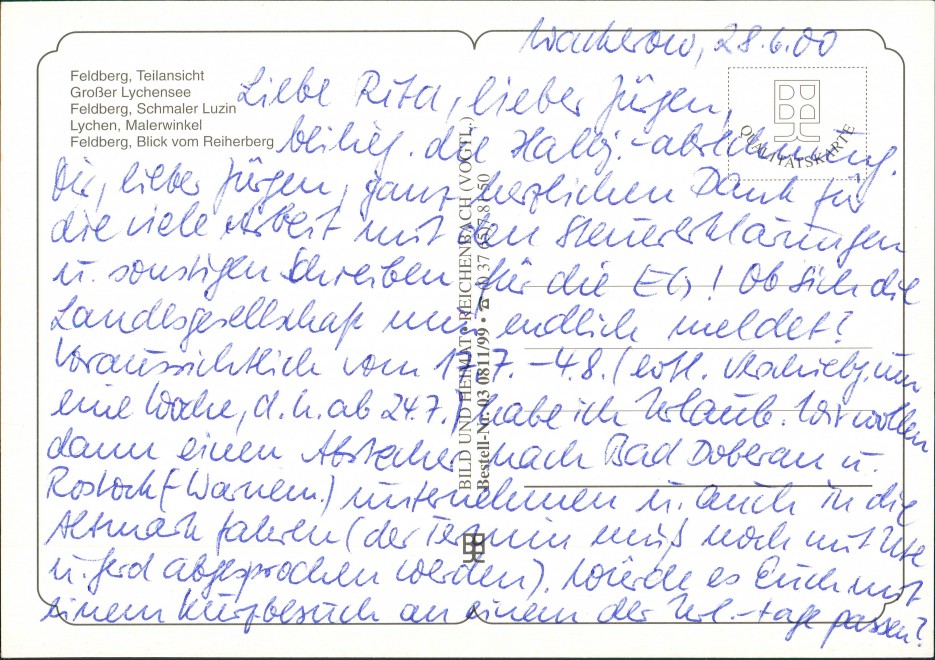 Wackerow, 28.6.00
Feldberg, Teilansicht
Großer Lychensee
Feldberg, Schmaler Luzin
Lychen, Malerwinkel
Feldberg, Blick vom Reiherberg
QUALITÄTSKARTE
Liebe Rita, lieber Jürgen,
beilieg. die Halbj.-abrechnung.
Dir, lieber Jürgen, ganz herzlichen Dank für
die viele Arbeit mit den Steuererklärungen
u. sonstigen Schreiben für die EG! Ob sich die
Landesgesellschaft nun endlich meldet?
Voraussichtlich vom 17.7.-4.8. (evtl. Verschiebg. um
eine Woche, d.h. ab 24.7.) habe ich Urlaub. Wir wollen
dann einen Abstecher nach Bad Doberan u.
Rostock (-Warnem.) unternehmen u. auch in die
Altmark fahren (der Termin muß noch mit Ute
u. Gerd abgesprochen werden). Würde es Euch mit
einem Kurzbesuch an einem der Url.-tage passen?
BILD UND HEIMAT • REICHENBACH (VOGTL.)
Bestell-Nr. 03 0811/99 • ☎ 0 37 65/7 81 50